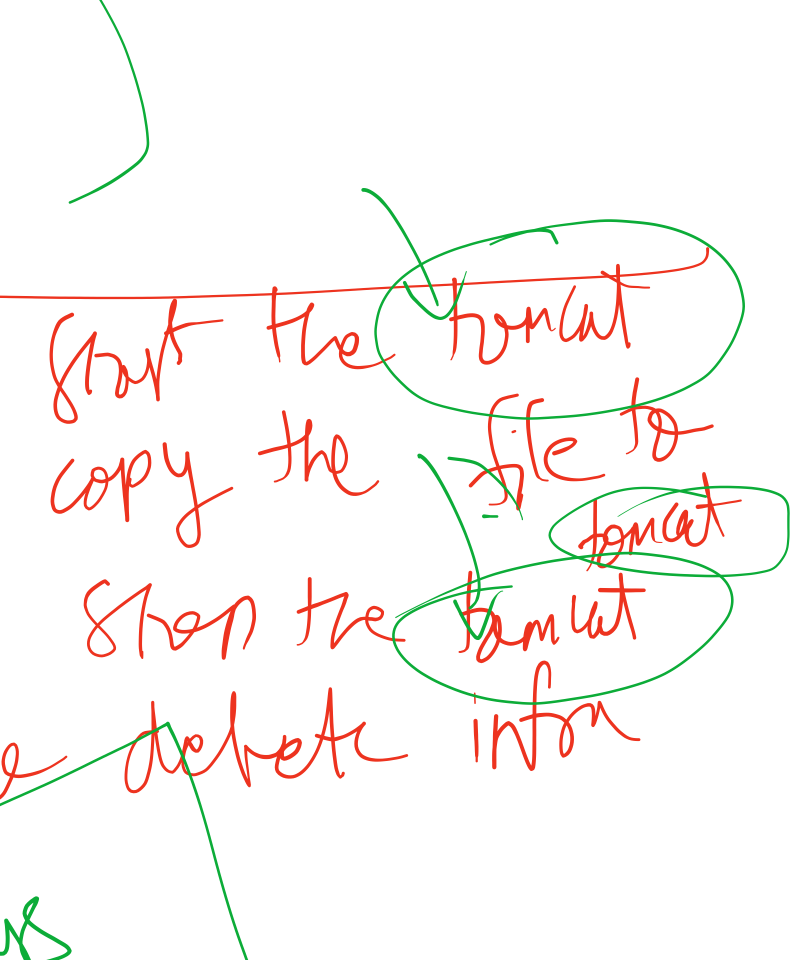 start the tomcat
copy the file to
tomcat
stop the tomcat
delete infra